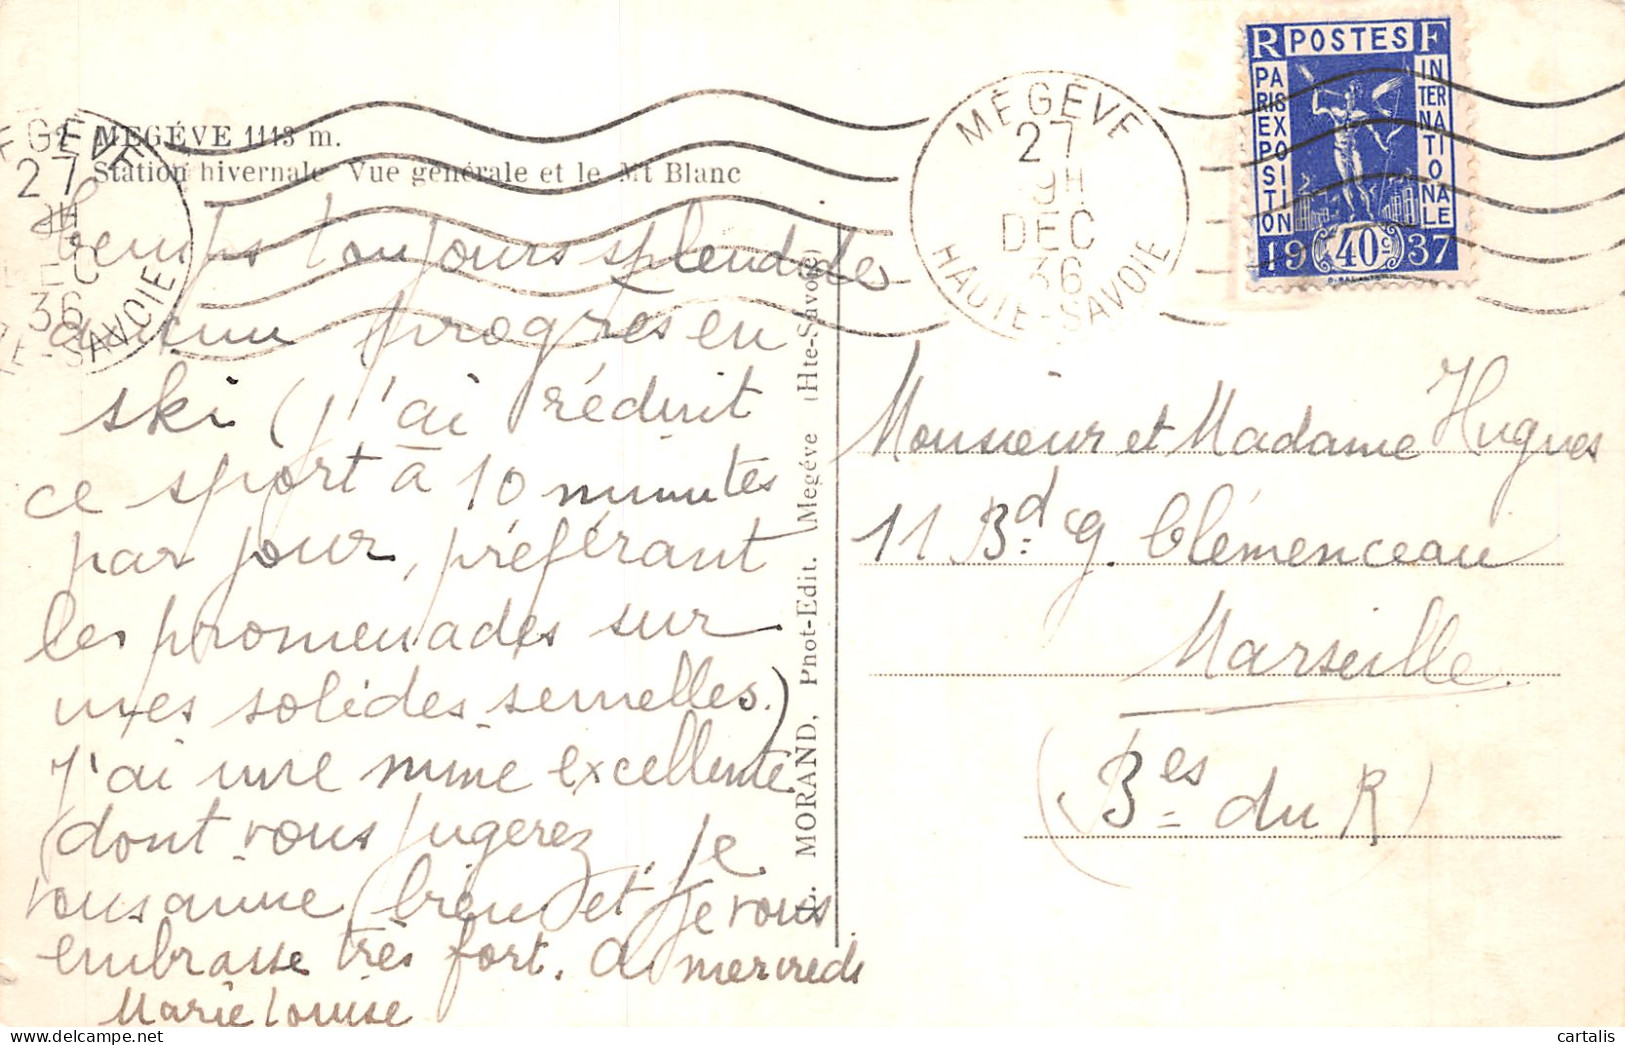 MEGÉVE 1113 m.
Station hivernale Vue générale et le Mt Blanc
Temps toujours splendide
aucun progrès en
ski (j'ai réduit
ce sport à 10 minutes
par jour, préférant
les promenades sur
mes solides semelles.)
J'ai une mine excellente
dont vous jugerez. Je
vous aime bien et je vous
embrasse très fort. A mercredi
Marie Louise
L. MORAND, Phot-Edit. Megéve (Hte-Savoie)
MEGÉVE
27
9H
DEC
36
HAUTE-SAVOIE
EGÉVE
27
9H
DEC
36
TE-SAVOIE
R POSTES F
PARIS EXPOSITION
INTERNATIONALE
1937
40c
Monsieur et Madame Hugues
11 Bd. G. Clémenceau
Marseille.
(Bes du R)
cartalis